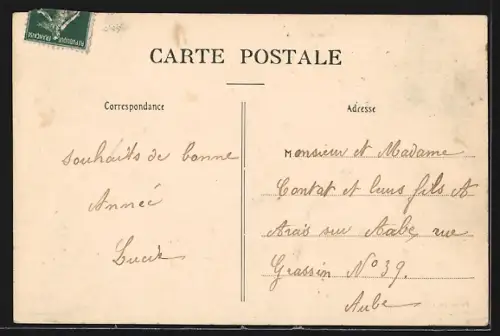 REPUBLIQUE FRANCAISE
CARTE POSTALE
Correspondance
souhaits de bonne
Année
Lucie
Adresse
Monsieur et Madame
Contat et leurs fils A
Arcis sur Aube, rue
Grassin N° 39.
Aube